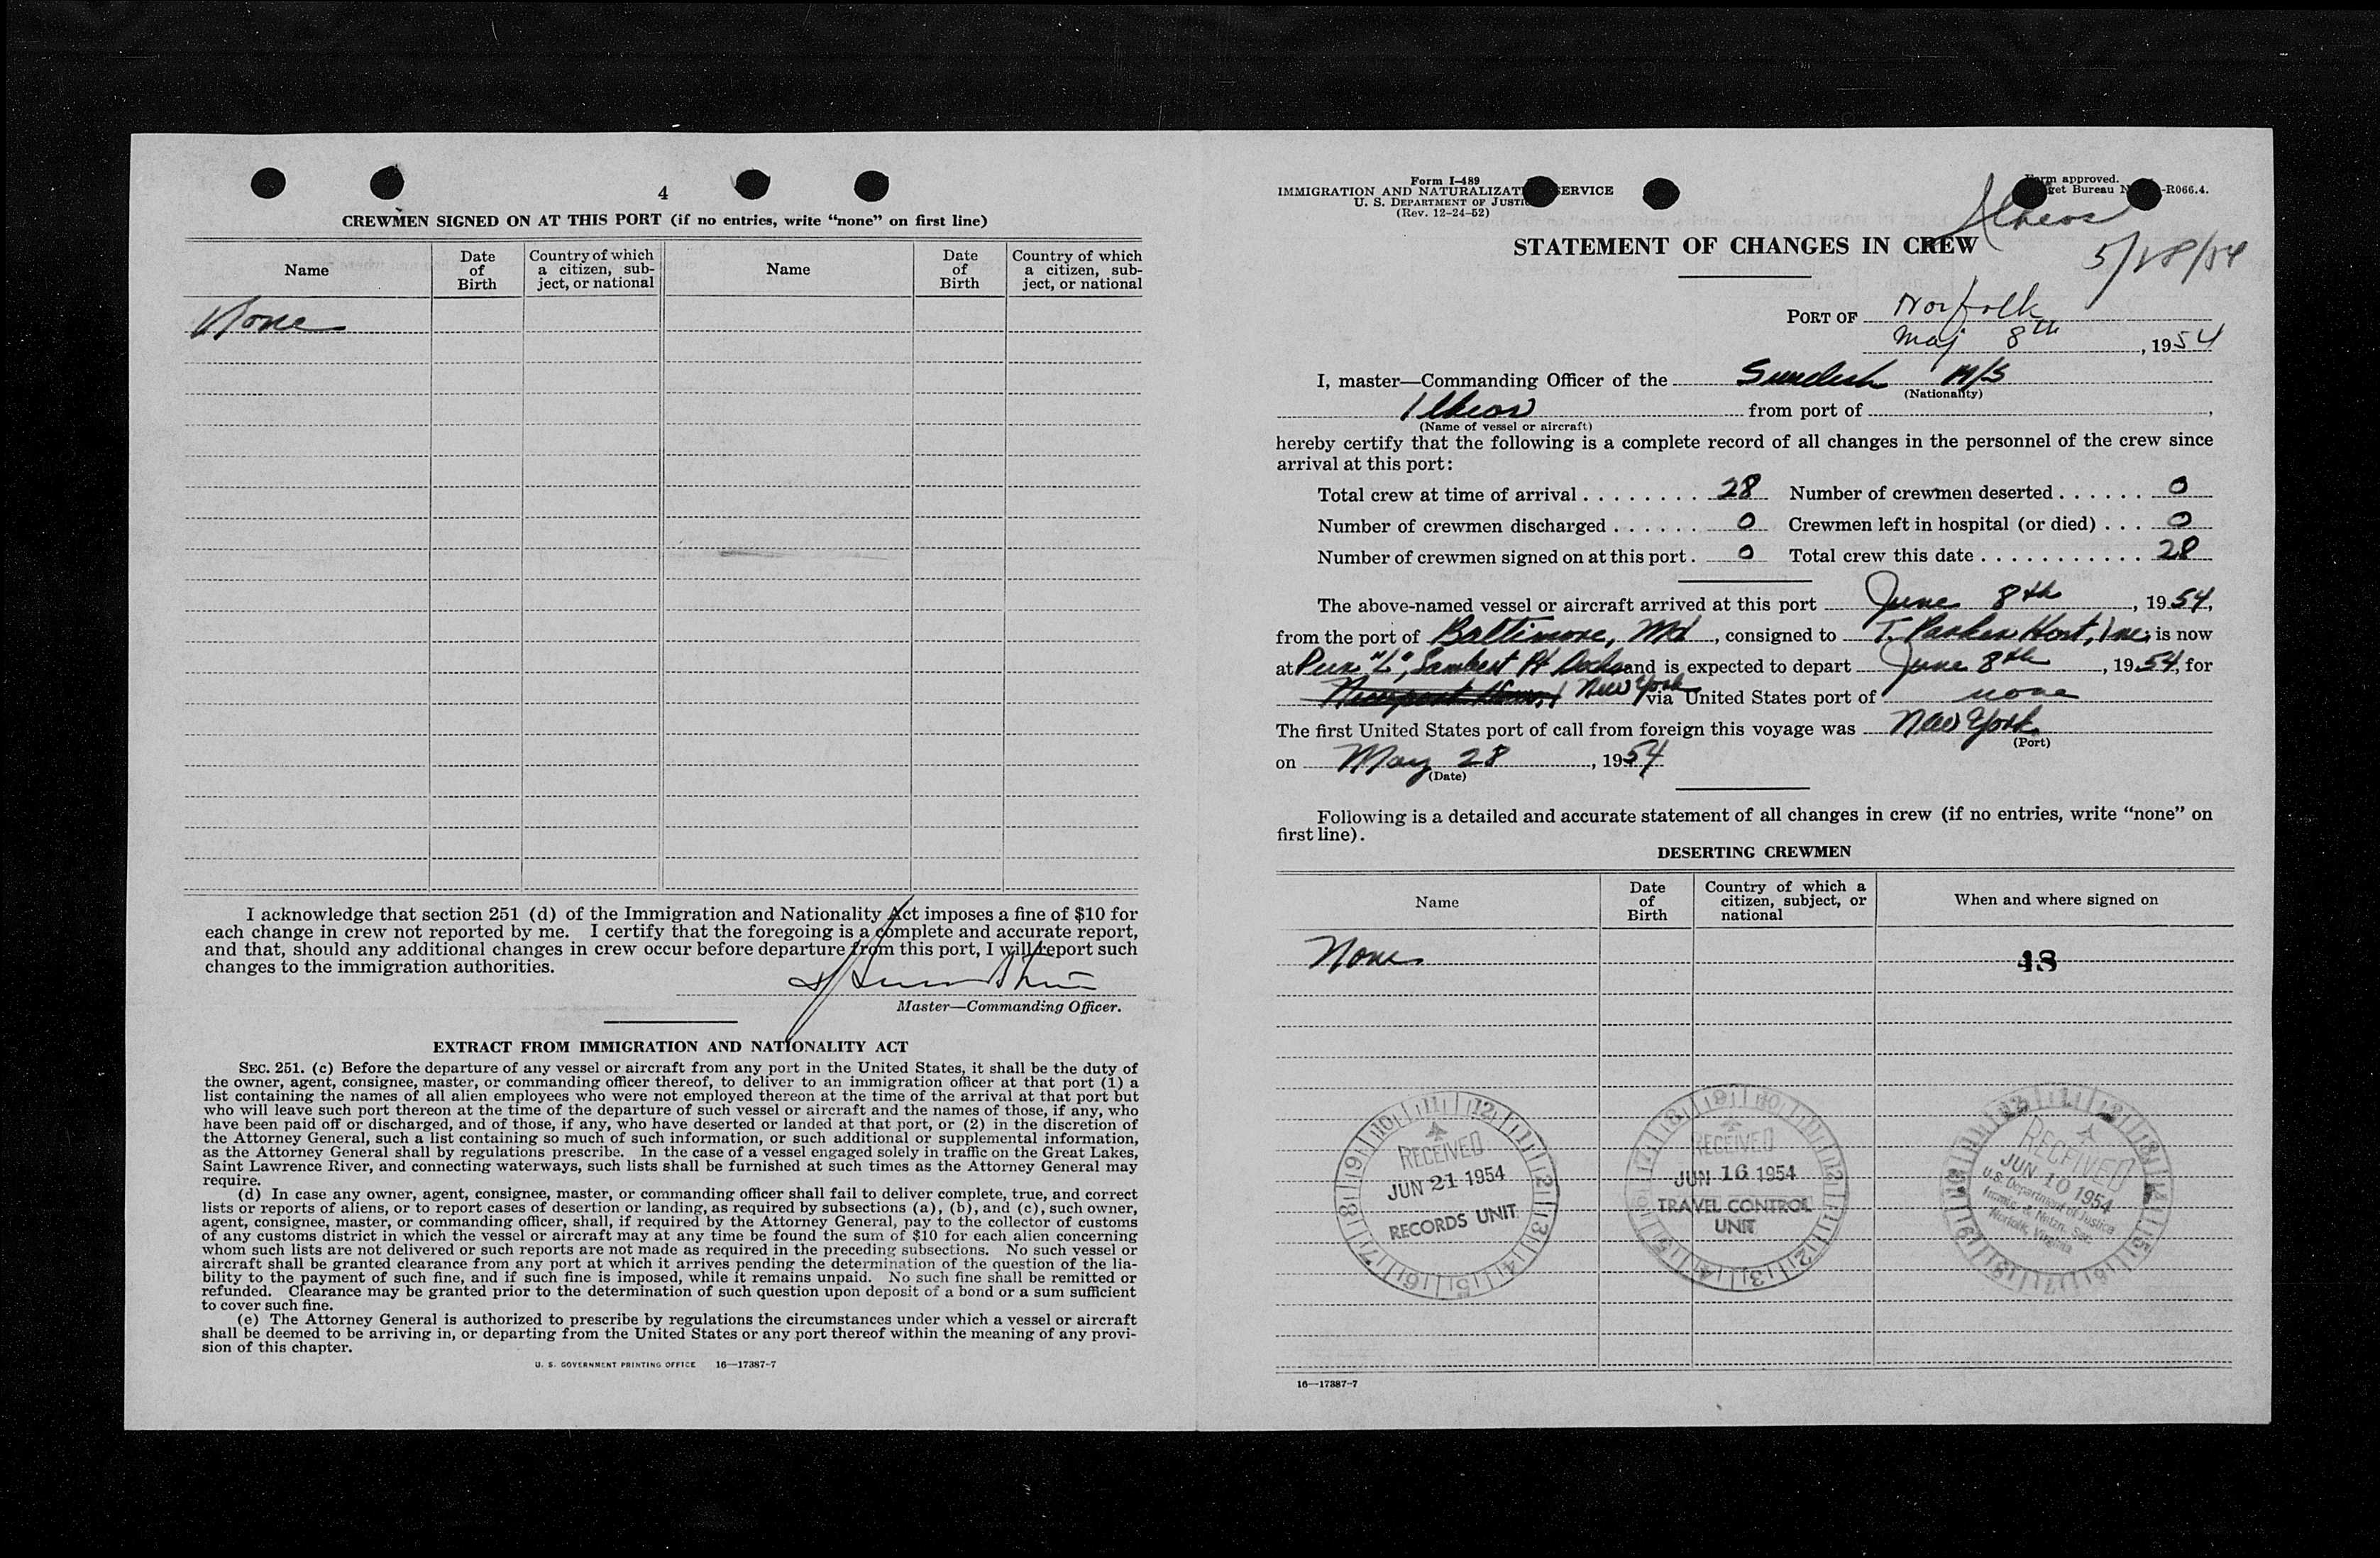 4
CREWMEN SIGNED ON AT THIS PORT (if no entries, write “none” on first line)
Name Date of Birth Country of which a citizen, sub-ject, or national Name Date of Birth Country of which a citizen, sub-ject, or national
None
I acknowledge that section 251 (d) of the Immigration and Nationality Act imposes a fine of $10 for
each change in crew not reported by me. I certify that the foregoing is a complete and accurate report,
and that, should any additional changes in crew occur before departure from this port, I will report such
changes to the immigration authorities.
Master—Commanding Officer.
EXTRACT FROM IMMIGRATION AND NATIONALITY ACT
SEC. 251. (c) Before the departure of any vessel or aircraft from any port in the United States, it shall be the duty of
the owner, agent, consignee, master, or commanding officer thereof, to deliver to an immigration officer at that port (1) a
list containing the names of all alien employees who were not employed thereon at the time of the arrival at that port but
who will leave such port thereon at the time of the departure of such vessel or aircraft and the names of those, if any, who
have been paid off or discharged, and of those, if any, who have deserted or landed at that port, or (2) in the discretion of
the Attorney General, such a list containing so much of such information, or such additional or supplemental information,
as the Attorney General shall by regulations prescribe. In the case of a vessel engaged solely in traffic on the Great Lakes,
Saint Lawrence River, and connecting waterways, such lists shall be furnished at such times as the Attorney General may
require.
(d) In case any owner, agent, consignee, master, or commanding officer shall fail to deliver complete, true, and correct
lists or reports of aliens, or to report cases of desertion or landing, as required by subsections (a), (b), and (c), such owner,
agent, consignee, master, or commanding officer, shall, if required by the Attorney General, pay to the collector of customs
of any customs district in which the vessel or aircraft may at any time be found the sum of $10 for each alien concerning
whom such lists are not delivered or such reports are not made as required in the preceding subsections. No such vessel or
aircraft shall be granted clearance from any port at which it arrives pending the determination of the question of the lia-
bility to the payment of such fine, and if such fine is imposed, while it remains unpaid. No such fine shall be remitted or
refunded. Clearance may be granted prior to the determination of such question upon deposit of a bond or a sum sufficient
to cover such fine.
(e) The Attorney General is authorized to prescribe by regulations the circumstances under which a vessel or aircraft
shall be deemed to be arriving in, or departing from the United States or any port thereof within the meaning of any provi-
sion of this chapter.
U. S. GOVERNMENT PRINTING OFFICE 16—17387-7
Form I-489
IMMIGRATION AND NATURALIZAT ERVICE
U. S. DEPARTMENT OF JUSTIC
(Rev. 12-24-52)
Form approved.
get Bureau N -R066.4.
Ilheos
5/28/54
STATEMENT OF CHANGES IN CREW
PORT OF Norfolk
Maj 8th, 1954
I, master—Commanding Officer of the Swedish M/S
(Nationality)
Ilheos from port of ,
(Name of vessel or aircraft)
hereby certify that the following is a complete record of all changes in the personnel of the crew since
arrival at this port:
Total crew at time of arrival ........ 28 Number of crewmen deserted ...... 0
Number of crewmen discharged ...... 0 Crewmen left in hospital (or died) ... 0
Number of crewmen signed on at this port . 0 Total crew this date ........... 28
The above-named vessel or aircraft arrived at this port June 8th, 1954,
from the port of Baltimore, Md, consigned to T. Parker Host, Inc, is now
at Pier "L", Lambert Pt Docks and is expected to depart June 8th, 1954, for
Newport News, New York via United States port of none
The first United States port of call from foreign this voyage was New York
(Port)
on May 28, 1954
(Date)
Following is a detailed and accurate statement of all changes in crew (if no entries, write “none” on
first line).
DESERTING CREWMEN
Name Date of Birth Country of which a citizen, subject, or national When and where signed on
None
48
RECEIVED
JUN 21 1954
RECORDS UNIT
RECEIVED
JUN 16 1954
TRAVEL CONTROL
UNIT
RECEIVED
JUN 10 1954
U.S. Department of Justice
Immig. & Natzn. Ser.
Norfolk, Virginia
16—17387-7